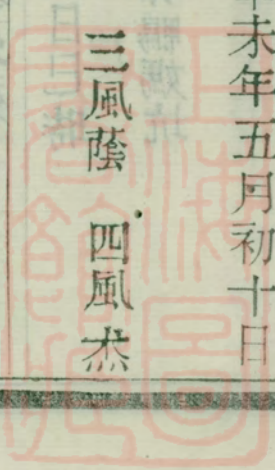 未年五月初十日
三風蔭 四風杰